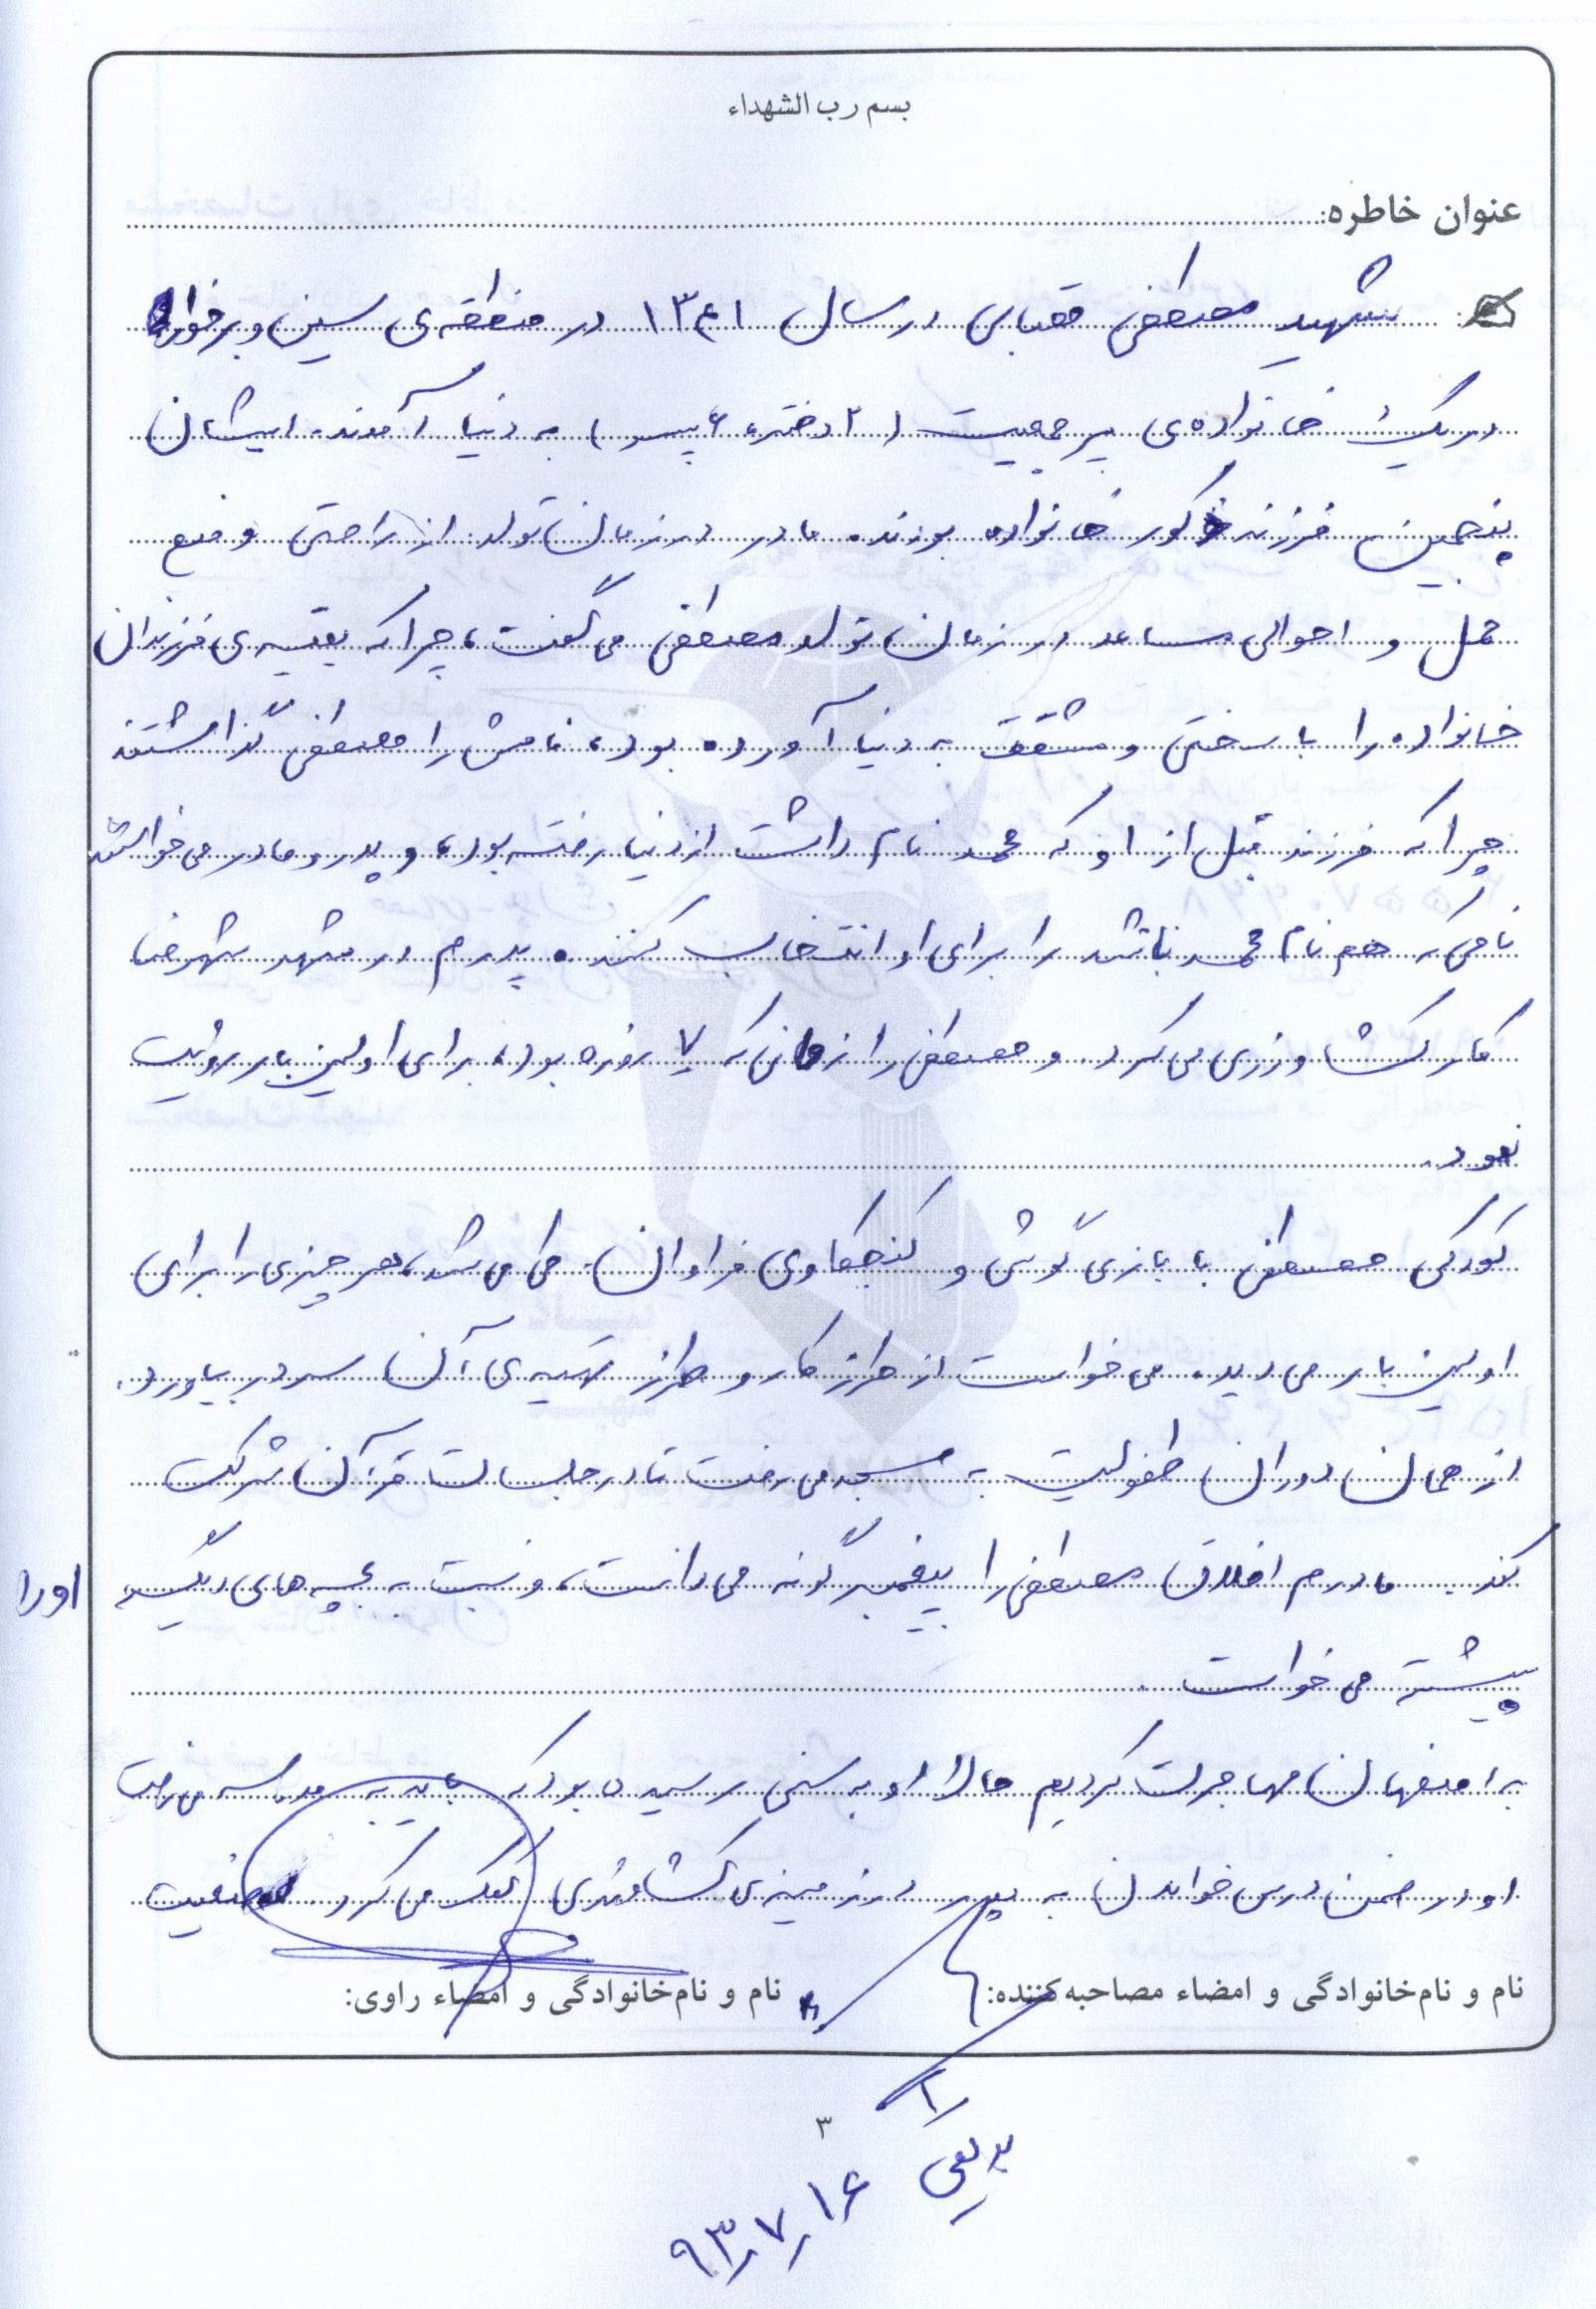 بسم رب الشهداء
عنوان خاطره:
شهید مصطفی قصابی در سال ۱۳۴۱ در منطقه‌ی سین و برخوار
در یک خانواده‌ی پر جمعیت (۲ دختر، ۶ پسر) به دنیا آمدند. ایشان
پنجمین فرزند ذکور خانواده بودند. مادر در زمان تولد از راحتی وضع
حمل و احوالی مساعد در زمان تولد مصطفی می‌گفت، چرا که بقیه‌ی فرزندان
خانواده را با سختی و مشقت به دنیا آورده بود، نامش را مصطفی گذاشتند
چرا که فرزند قبل از او که محمد نام داشت از دنیا رفته بود، و پدر و مادر می‌خواستند
نامی که هم نام محمد باشد را برای او انتخاب کنند. پدرم در مشهد شهرضا
کار کشاورزی می‌کرد. و مصطفی را زمانی که ۷ روزه بود، برای اولین بار رؤیت
نمود.
کودکی مصطفی با بازی گوشی و کنجکاوی فراوان طی می‌شد، هر چیزی را برای
اولین بار می‌دید. می‌خواست از طرز کار و طرز تهیه‌ی آن سر در بیاورد.
از همان دوران طفولیت به مسجد می‌رفت تا در جلسات قرآن شرکت
کند. مادرم اخلاق مصطفی را پیغمبر گونه می‌دانست، و نسبت به بچه‌های دیگر او را
بیشتر می‌خواست.
به اصفهان مهاجرت کردیم حالا او به سنی رسیده بود که باید به مدرسه می‌رفت
او در ضمن درس خواندن به پدر در زمینه‌ی کشاورزی کمک می‌کرد
نام و نام‌خانوادگی و امضاء مصاحبه‌کننده: نام و نام‌خانوادگی و امضاء راوی:
۳
۹۳/۷/۱۶